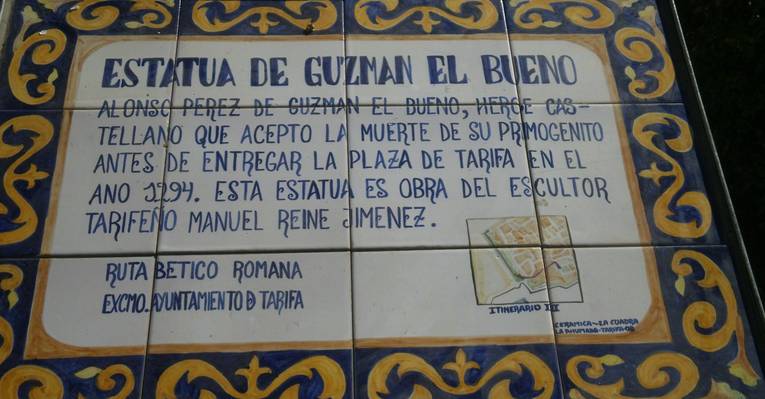 ESTATUA DE GUZMAN EL BUENO
ALONSO PEREZ DE GUZMAN EL BUENO, HEROE CAS-
TELLANO QUE ACEPTO LA MUERTE DE SU PRIMOGENITO
ANTES DE ENTREGAR LA PLAZA DE TARIFA EN EL
ANO 1294. ESTA ESTATUA ES OBRA DEL ESCULTOR
TARIFEÑO MANUEL REINE JIMENEZ.
RUTA BETICO ROMANA
EXCMO. AYUNTAMIENTO D TARIFA
ITINERARIO III
CERAMICA-LA CUADRA
LA AHUMADA-TARIFA-